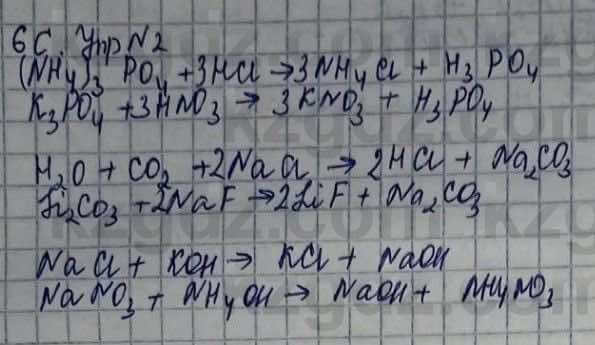 6С. Упр N2
(NH4)3 PO4 + 3HCl → 3NH4Cl + H3PO4
K3PO4 + 3HNO3 → 3KNO3 + H3PO4
H2O + CO2 + 2NaCl → 2HCl + Na2CO3
Li2CO3 + 2NaF → 2LiF + Na2CO3
NaCl + KOH → KCl + NaOH
NaNO3 + NH4OH → NaOH + NH4NO3